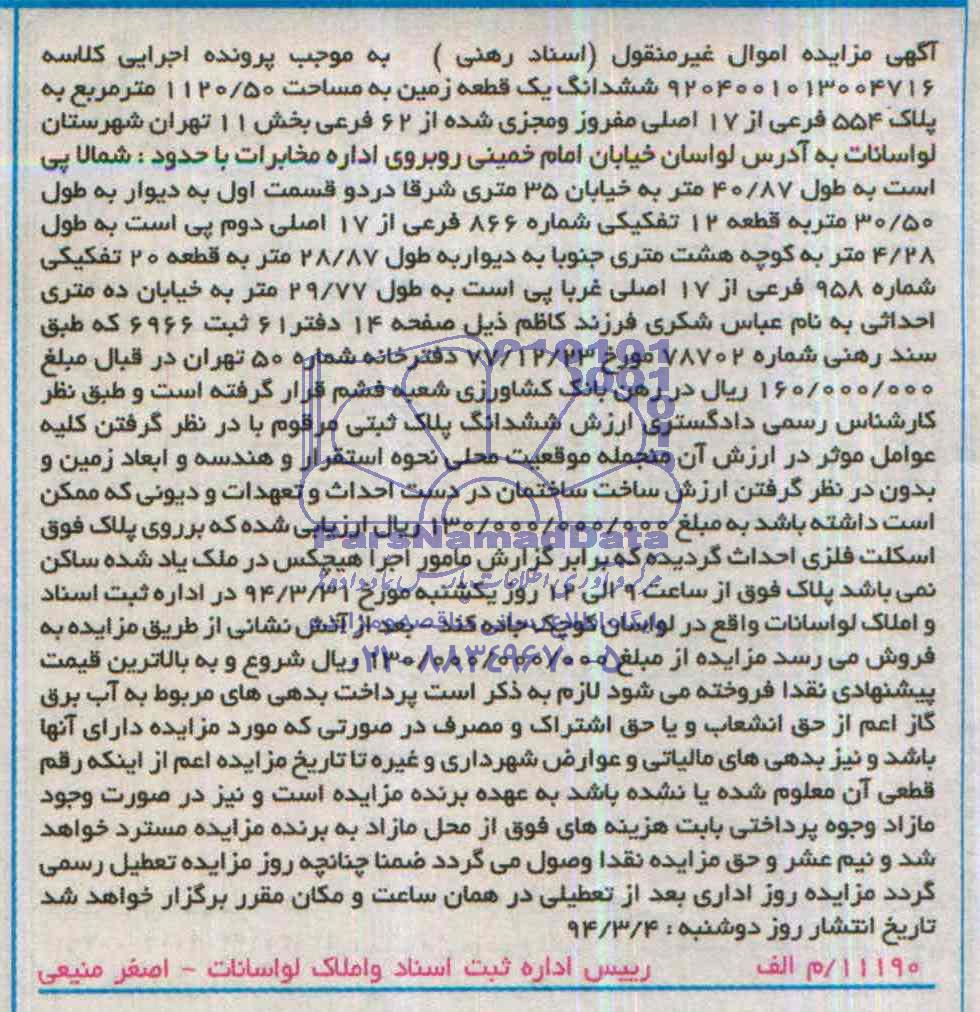 آگهی مزایده اموال غیرمنقول (اسناد رهنی) به موجب پرونده اجرایی کلاسه
۹۲۰۴۰۰۱۰۱۳۰۰۴۷۱۶ ششدانگ یک قطعه زمین به مساحت ۱۱۲۰/۵۰ مترمربع به
پلاک ۵۵۴ فرعی از ۱۷ اصلی مفروز ومجزی شده از ۶۲ فرعی بخش ۱۱ تهران شهرستان
لواسانات به آدرس لواسان خیابان امام خمینی روبروی اداره مخابرات با حدود : شمالا پی
است به طول ۴۰/۸۷ متر به خیابان ۳۵ متری شرقا دردو قسمت اول به دیوار به طول
۳۰/۵۰ متربه قطعه ۱۲ تفکیکی شماره ۸۶۶ فرعی از ۱۷ اصلی دوم پی است به طول
۴/۲۸ متر به کوچه هشت متری جنوبا به دیواربه طول ۲۸/۸۷ متر به قطعه ۲۰ تفکیکی
شماره ۹۵۸ فرعی از ۱۷ اصلی غربا پی است به طول ۲۹/۷۷ متر به خیابان ده متری
احداثی به نام عباس شکری فرزند کاظم ذیل صفحه ۱۴ دفتر۶۱ ثبت ۶۹۶۶ که طبق
سند رهنی شماره ۷۸۷۰۲ مورخ ۷۷/۱۲/۲۳ دفترخانه شماره ۵۰ تهران در قبال مبلغ
۱۶۰/۰۰۰/۰۰۰ ریال در رهن بانک کشاورزی شعبه فشم قرار گرفته است و طبق نظر
کارشناس رسمی دادگستری ارزش ششدانگ پلاک ثبتی مرقوم با در نظر گرفتن کلیه
عوامل موثر در ارزش آن منجمله موقعیت محلی نحوه استقرار و هندسه و ابعاد زمین و
بدون در نظر گرفتن ارزش ساخت ساختمان در دست احداث و تعهدات و دیونی که ممکن
است داشته باشد به مبلغ ۱۳۰/۰۰۰/۰۰۰/۰۰۰ ریال ارزیابی شده که برروی پلاک فوق
اسکلت فلزی احداث گردیده که برابر گزارش مامور اجرا هیچکس در ملک یاد شده ساکن
نمی باشد پلاک فوق از ساعت ۹ الی ۱۲ روز یکشنبه مورخ ۹۴/۳/۳۱ در اداره ثبت اسناد
و املاک لواسانات واقع در لواسان کوچک جاده کند - بعد از آتش نشانی از طریق مزایده به
فروش می رسد مزایده از مبلغ ریال شروع و به بالاترین قیمت
پیشنهادی نقدا فروخته می شود لازم به ذکر است پرداخت بدهی های مربوط به آب برق
گاز اعم از حق انشعاب و یا حق اشتراک و مصرف در صورتی که مورد مزایده دارای آنها
باشد و نیز بدهی های مالیاتی و عوارض شهرداری و غیره تا تاریخ مزایده اعم از اینکه رقم
قطعی آن معلوم شده یا نشده باشد به عهده برنده مزایده است و نیز در صورت وجود
مازاد وجوه پرداختی بابت هزینه های فوق از محل مازاد به برنده مزایده مسترد خواهد
شد و نیم عشر و حق مزایده نقدا وصول می گردد ضمنا چنانچه روز مزایده تعطیل رسمی
گردد مزایده روز اداری بعد از تعطیلی در همان ساعت و مکان مقرر برگزار خواهد شد
تاریخ انتشار روز دوشنبه : ۹۴/۳/۴
۱۱۱۹۰/م الف رییس اداره ثبت اسناد واملاک لواسانات - اصغر منیعی
ParsNamadData
۰۲۱-۸۸۳۴۹۶۷۰-۵